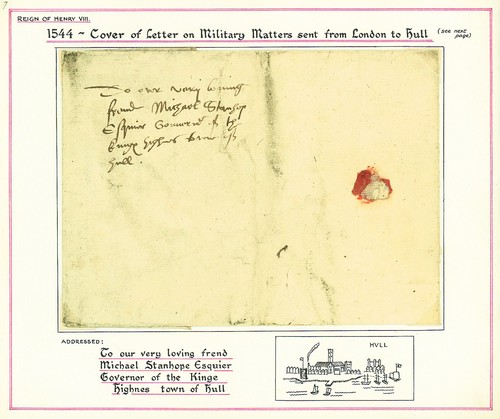 7
REIGN OF HENRY VIII.
1544 ~ Cover of Letter on Military Matters sent from London to Hull
(see next
page)
To our very loving
frend Michael Stanhop
Esquier Governer of the
kings highnes towne of
hull.
ADDRESSED:
To our very loving frend
Michael Stanhope Esquier
Governor of the Kinge
Highnes town of Hull
HVLL